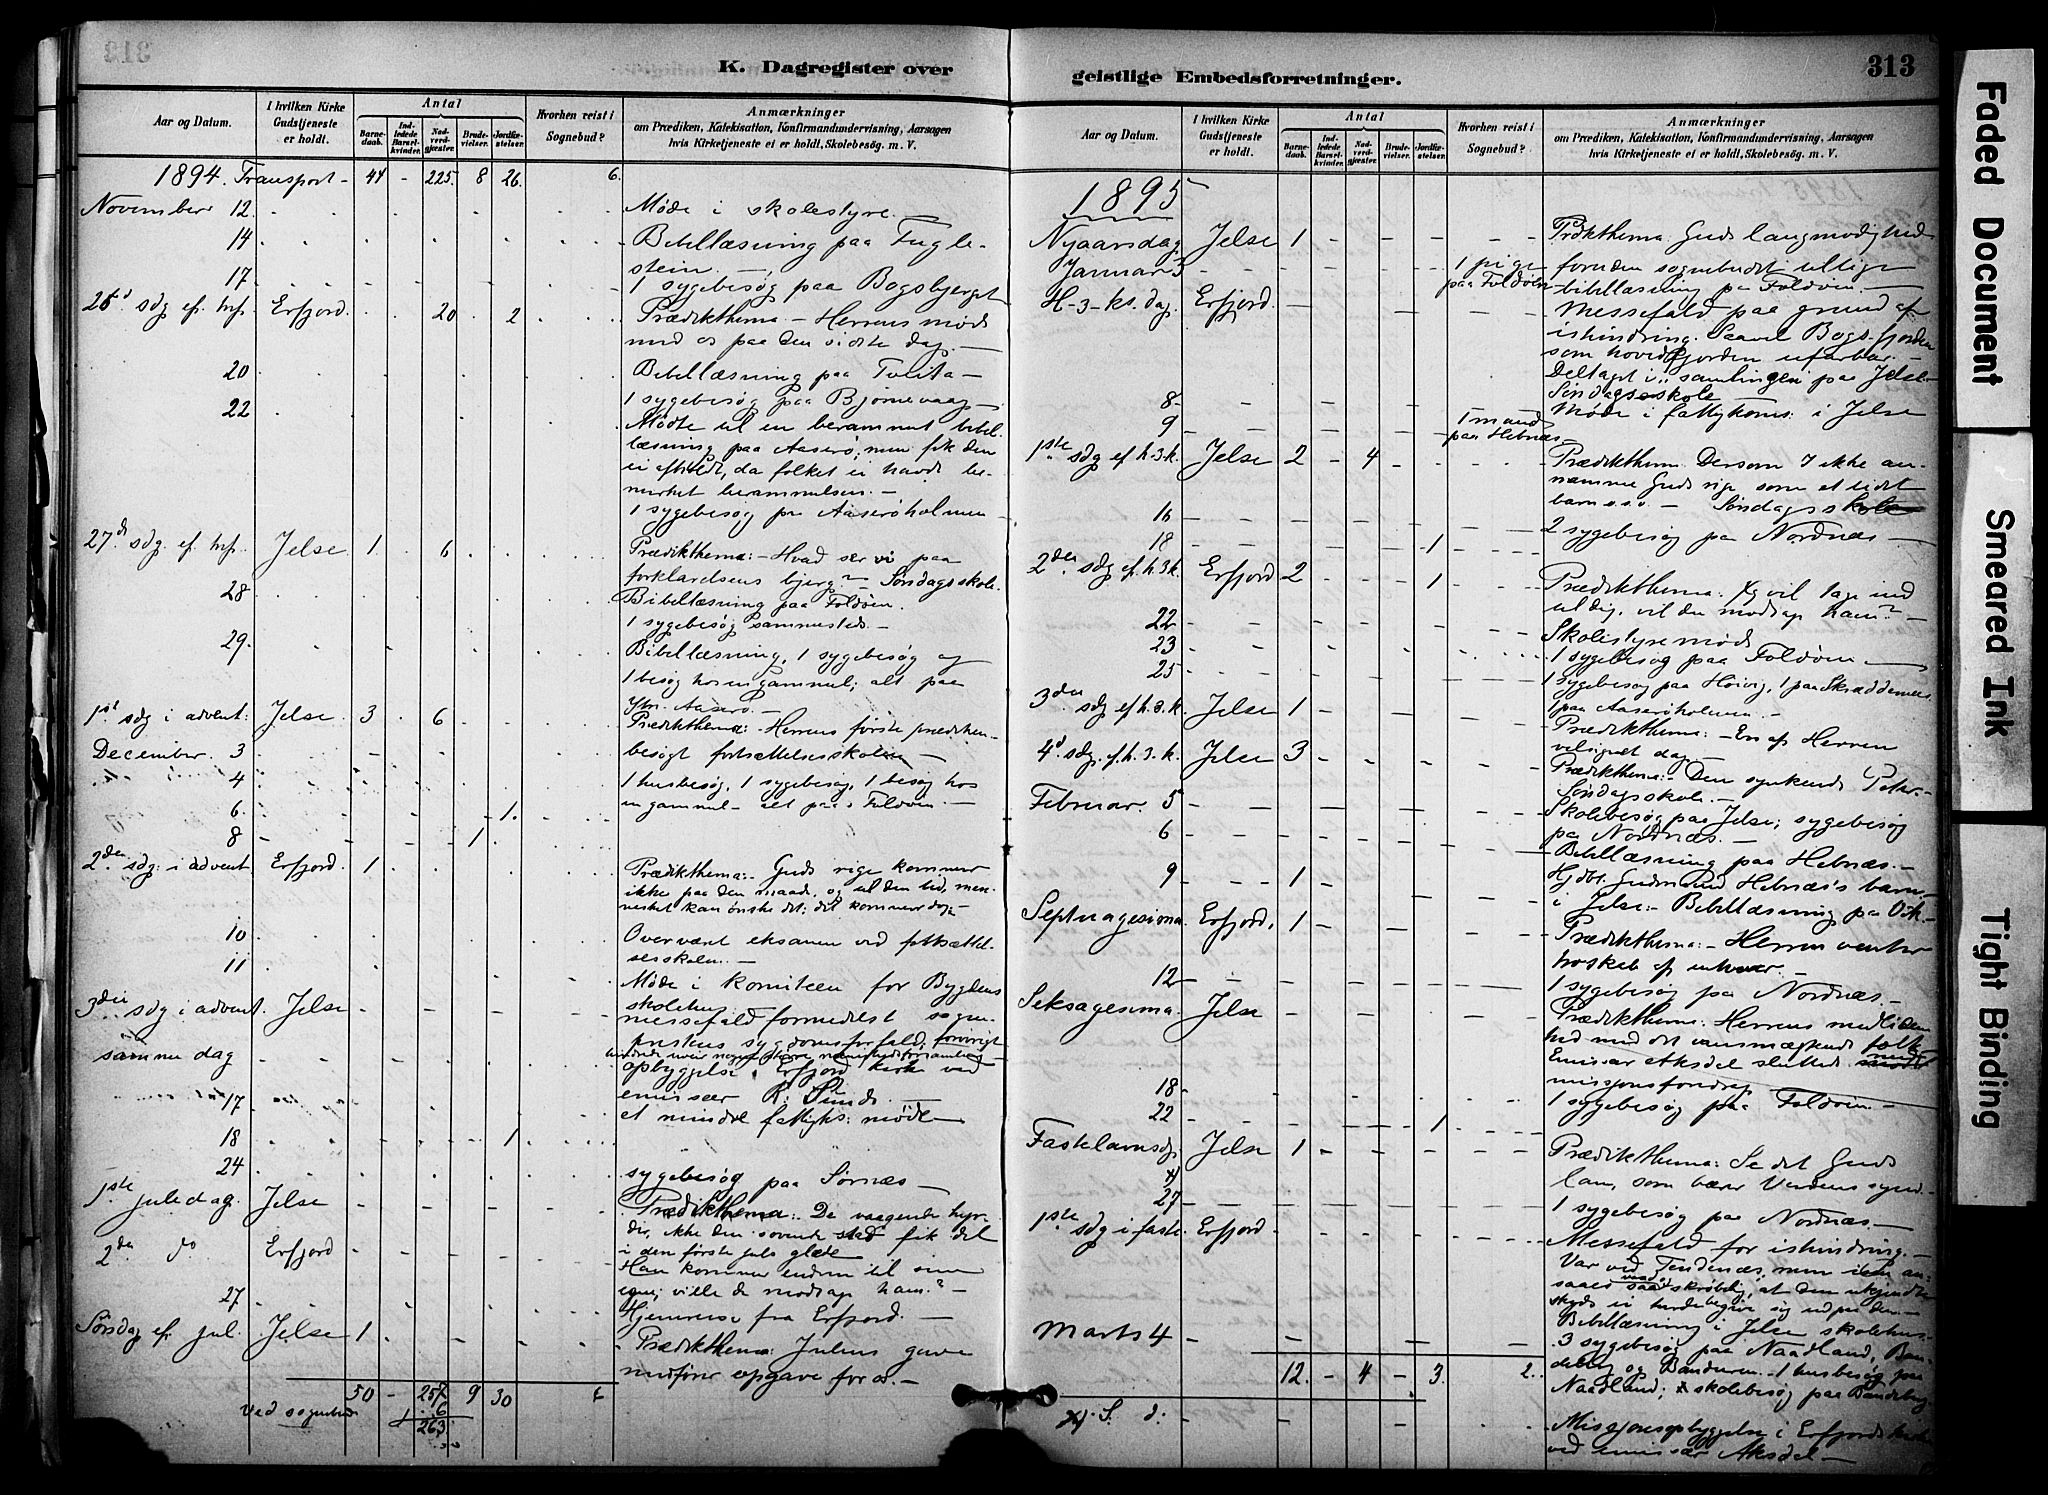 313
K. Dagregister over geistlige Embedsforretninger.
Aar og Datum.
I hvilken Kirke Gudstjeneste er holdt.
Antal
Barne-daab.
Ind-ledede Barsel-kvinder.
Nad-verd-gjæster.
Brude-vielser.
Jordfæ-stelser.
Hvorhen reist i Sognebud?
Anmærkninger
om Prædiken, Katekisation, Konfirmandundervisning, Aarsagen
hvis Kirketjeneste ei er holdt, Skolebesøg. m. V.
1894. Transport - 44 - 225. 8 26. 6.
November 12. Møde i skolestyre. —
14 Bibellæsning paa Fugle-
stein. —
17. 1 sygebesøg paa Bogsbjerget
26d sdg ef. trf. Erfjord. 20 2 Prædikthema - Herrens møde
med os paa den sidste dag. —
20 Bibellæsning paa Tveita —
22 1 sygebesøg paa Bjørnevaag —
Mødte til en berammet bibel-
læsning paa Aaserø; men fik den
ei afholdt, da folket ei havde be-
mærket berammelsen. —
1 sygebesøg paa Aaserøholmen —
27d. sdg. ef. trf. Jelse 1. 6 Prædikthema: - Hvad ser vi paa
forklarelsens bjerg? Søndagsskole.
28 Bibellæsning paa Foldøen.
1 sygebesøg sammesteds. —
29. Bibellæsning, 1 sygebesøg og
1 besøg hos en gammel; alt paa
Ytr. Aaserø. —
1st sdg i advent. Jelse 3 6 Prædikthema: - Herrens første prædiken -
December. 3 besøgt fortsættelsesskolen —
4 1 husbesøg, 1 sygebesøg, 1 besøg hos
6. 1. en gammel - alt paa Foldøen. —
8 1
2den sdg. i advent Erfjord. 1 Prædikthema: - Guds rige kommer
ikke paa den maade, og til den tid, men-
nesket kan ønske det; det kommer dog -
10 Overvært eksamen ved fortsættel-
sesskolen. —
11 Møde i komiteen for Bygdens
skolehus
3die sdg i advent. Jelse - messefald formedelst sogne-
prestens sygdomsforfald, forøvrigt
samme dag opbyggelse i Erfjord kirke ved
emissær R. Sund. —
17 et mindre fattigks. møde —
18 1
24 sygebesøg paa Sørnæs —
1ste juledag. Jelse Prædikthema: De vaagende hyr-
der, ikke den sovende stad fik del
i den første juls glæde
2den do Erfjord Han kommer endnu til sine
egne; ville de modtage ham? —
27 Hjemreise fra Erfjord. —
Søndag ef. jul. Jelse 1 Prædikthema: Julens gave
medfører opgave for os. —
50 - 257 9 30 6
Ved sognebud 6
263
Aar og Datum.
I hvilken Kirke Gudstjeneste er holdt.
Antal
Barne-daab.
Ind-ledede Barsel-kvinder.
Nad-verd-gjæster.
Brude-vielser.
Jordfæ-stelser.
Hvorhen reist i Sognebud?
Anmærkninger
om Prædiken, Katekisation, Konfirmandundervisning, Aarsagen
hvis Kirketjeneste ei er holdt, Skolebesøg. m. V.
1895
Nyaarsdag Jelse 1 - - - - - Prdkthema: Guds langmodighed
Januar 3 1 pige paa Foldøen foruden sognebudet tillige
bibellæsning paa Foldøen. —
H-3-ks. dag. Erfjord. Messefald paa grund af
ishindring. Saavel Bogsfjorden
som hovedfjorden ufarbar. —
Deltaget i samlingen paa Jelse
Søndagsskole
8 - Møde i fattigkoms. i Jelse
9 1 mand paa Hebnæs -
1ste sdg ef h-3-k. Jelse 2 - 4 Prædikthema Dersom I ikke an-
namme Guds rige som et lidet
barn o.s.v. — Søndagsskole
16 2 sygebesøg paa Nordnæs —
18 1
2den sdg ef. h. 3k. Erfjord 2 1 Prædikthema: Jeg vil tage ind
til dig, vil du modtage ham?
22 Skolestyremøde
23 1 sygebesøg paa Foldøen —
25 1 sygebesøg paa Høivig, 1 paa Skræddernes
1 paa Aaserøholmen. —
3die sdg ef h.3.k. Jelse 1 Prædikthema: - En af Herren
velsignet dag —
4d sdg. ef. h. 3. k. Jelse 3 Prædikthema: - Den synkende Peter.
Søndagsskole. —
Februar. 5 Skolebesøg paa Jelse; sygebesøg
paa Nordnæs. —
6 Bibellæsning paa Hebnæs. —
9 1 Hjdbt. Gudmund Hebnæs's barn,
i Jelse: - Bibellæsning paa Vik -
Septuagesima Erfjord. 1 Prædikthema: - Herren venter
troskab af enhver. —
12 1 sygebesøg paa Nordnæs. —
Seksagesima. Jelse Prædikthema: Herrens medliden
hed med det vansmægtende folk
Emissær Aksdal sluttede med
missionsforedrag
18 1 sygebesøg paa Foldøen —
22 1
Fastelavnsdg Jelse 1 Prædikthema: Se det Guds
lam, som bærer Verdens synd. -
x)
27 1 sygebesøg paa Nordnæs —
1ste sdg i faste. Erfjord Messefald for ishindring. —
Var ved Tendenæs, men isen an-
saaes saa skrøbelig, at den ukjendte
skyds ei turde begive sig ud paa den. —
Marts 4 Bibellæsning i Jelse skolehus -
3 sygebesøg paa Naadland, Ban-
12. - 4 - 3. 2. deberg og Banderen. 1 husbesøg paa
Naadland; skolebesøg paa Bandeberg
x) S. d: Missionsopbyggelse i Erfjords kirke
ved emissær Aksdal —
Faded Document
Smeared Ink
Tight Binding